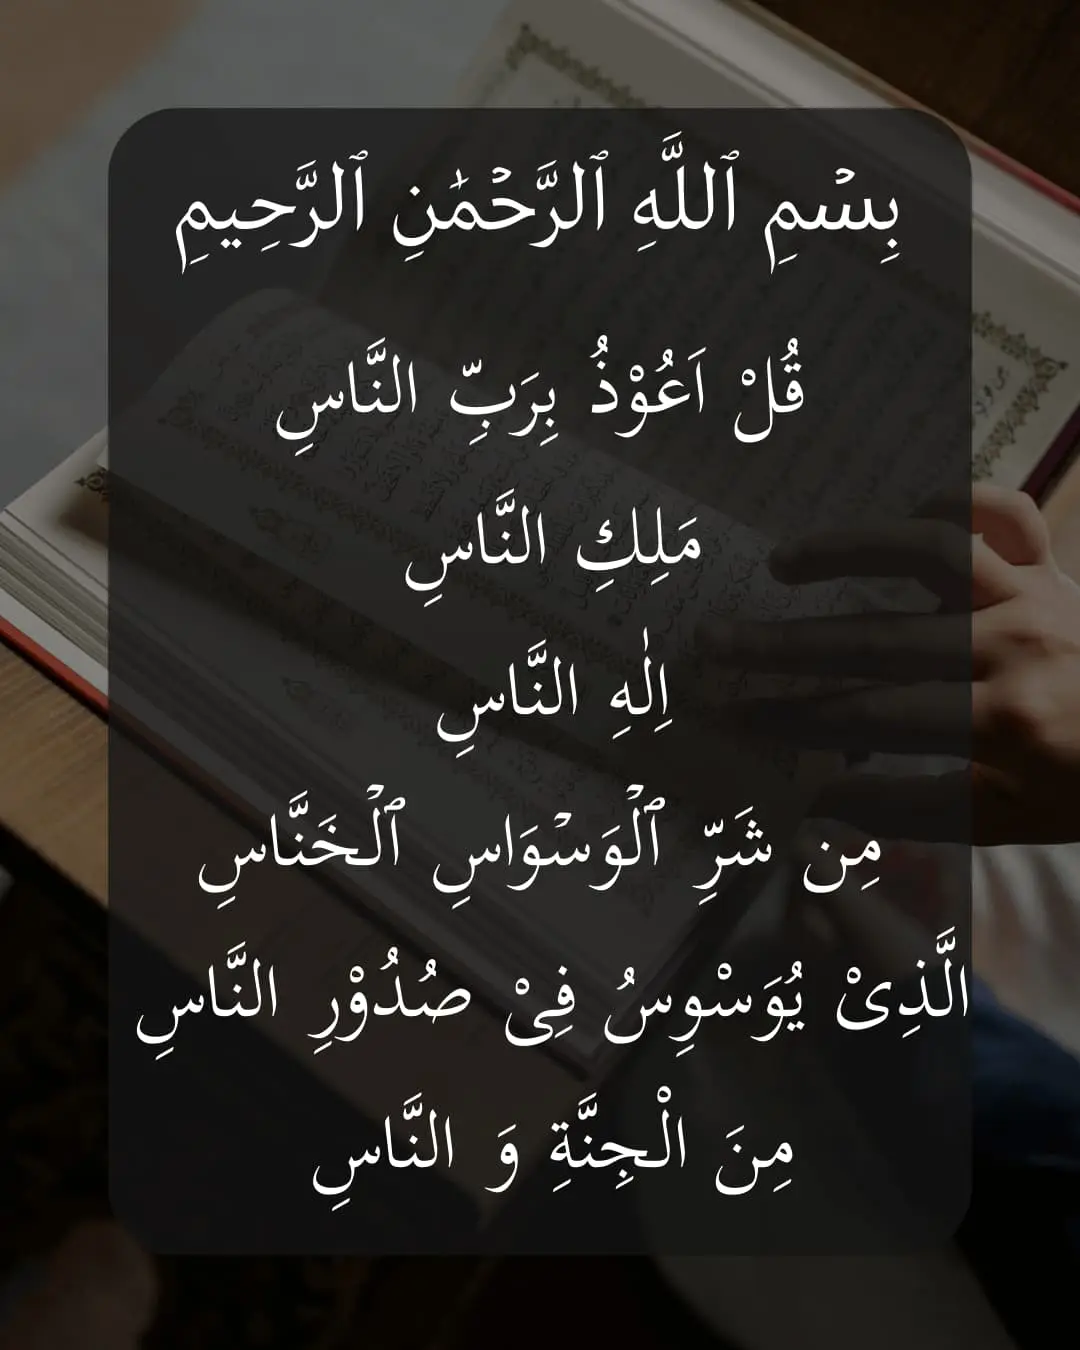 بِسۡمِ ٱللَّهِ ٱلرَّحۡمَٰنِ ٱلرَّحِيمِ
قُلْ اَعُوْذُ بِرَبِّ النَّاسِ
مَلِكِ النَّاسِ
اِلٰهِ النَّاسِ
مِن شَرِّ ٱلۡوَسۡوَاسِ ٱلۡخَنَّاسِ
الَّذِىْ يُوَسْوِسُ فِىْ صُدُوْرِ النَّاسِ
مِنَ الْجِنَّةِ وَ النَّاسِ